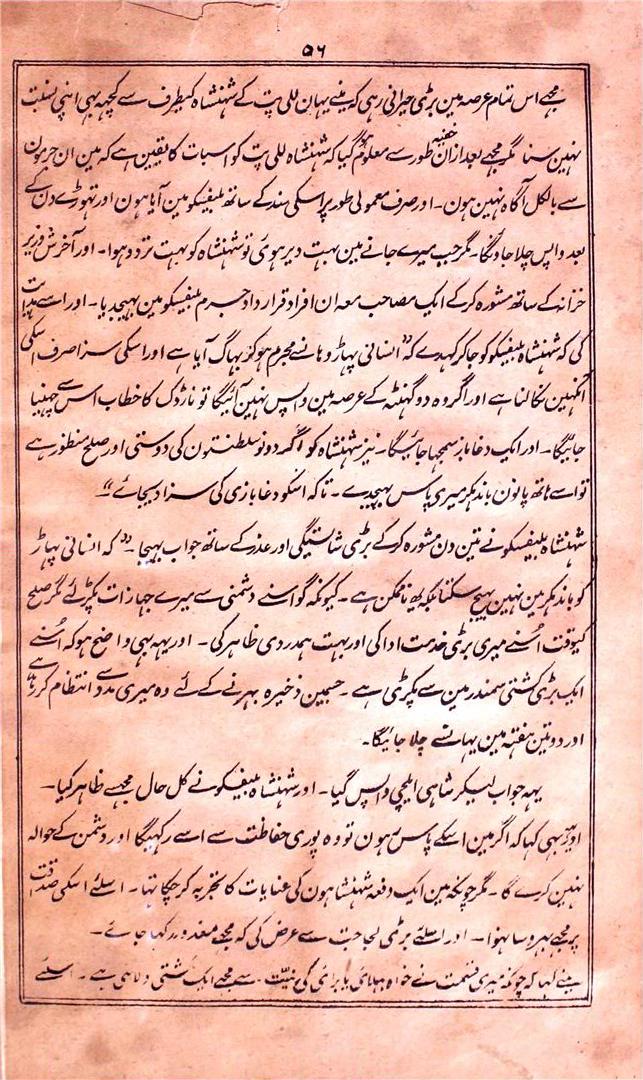 ۵۶
مجھے اس تمام عرصہ مین بڑی حیرانی رہی کہ مینے یہان للی پت کے شہنشاہ کیطرف سے کچھہ بھی اپنی نسبت
نہین سنا مگر مجھے بعد ازان خفیہ طور سے معلوم ہو گیا کہ شہنشاہ للی پت کو اسبات کا یقین ہے کہ مین ان جرمون
سے بالکل آگاہ نہین ہون۔ اور صرف معمولی طور پر اسکی سند کے ساتھ بلیفیسکو مین آیا ہون اور تھوڑے دن کے
بعد واپس چلا جاؤنگا۔ مگر جب میرے جانے مین بہت دیر ہوئی تو شہنشاہ کو بہت تردد ہوا۔ اور آخرش وزیر
خزانہ کے ساتھ مشورہ کر کے ایک مصاحب معہ ان افراد قرارداد جرم بلیفیسکو مین بھیجدیا۔ اور اسے ہدایت
کی کہ شہنشاہ بلیفیسکو کو جا کر کہدے کہ ”انسانی پہاڑ وہانسے مجرم ہو کر بھاگ آیا ہے اور اسکی سزا صرف اسکی
آنکہین نکالنا ہے اور اگر وہ دو گھنٹہ کے عرصہ مین واپس نہین آئیگا تو نارڈک کا خطاب اس سے چھینا
جائیگا۔ اور ایک دغاباز سمجھا جائیگا۔ نیز شہنشاہ کو اگر دونو سلطنتون کی دوستی اور صلح منظور ہے
تو اسے ہاتھ پانون باندہکر میرے پاس بھیجدے۔ تاکہ اسکو دغابازی کی سزا دیجائے“۔
شہنشاہ بلیفیسکو نے تین دن مشورہ کر کے بڑی شائستگی اور عذر کے ساتھ جواب بھیجا۔ ”کہ انسانی پہاڑ
کو باندہکر مین نہین بھیج سکتا بلکہ یہ ناممکن ہے۔ کیونکہ گو اسنے دشمنی سے میرے جہازات پکڑلئے مگر صلح
کیوقت اُسنے میری بڑی خدمت ادا کی اور بہت ہمدردی ظاہر کی۔ اور یہہ بھی واضح ہو کہ اُسنے
ایک بڑی کشتی سمندر مین سے پکڑی ہے۔ جسمین ذخیرہ بھرنے کے لئے وہ میری مدد سے انتظام کر رہا ہے
اور دو تین ہفتہ مین یہانسے چلا جائیگا۔
یہہ جواب لیکر شاہی ایلچی واپس گیا۔ اور شہنشاہ بلیفیسکو نے کل حال مجھسے ظاہر کیا۔
اور یہہ بھی کہا کہ اگر مین اسکے پاس رہون تو وہ پوری حفاظت سے اسے رکھیگا اور دشمن کے حوالہ
نہین کرے گا۔ مگر چونکہ مین ایک دفعہ شہنشاہون کی عنایات کا تجربہ کر چکا تھا۔ اسلئے اسکی صداقت
پر مجھے بھروسا نہوا۔ اور اسلئے بڑی لجاجت سے عرض کی کہ مجھے معذور رکھا جائے۔
مینے کہا کہ چونکہ میری قسمت نے خواہ بھلائی یا برائی کی نیت سے مجھے ایک کشتی دلادی ہے۔ اسلئے